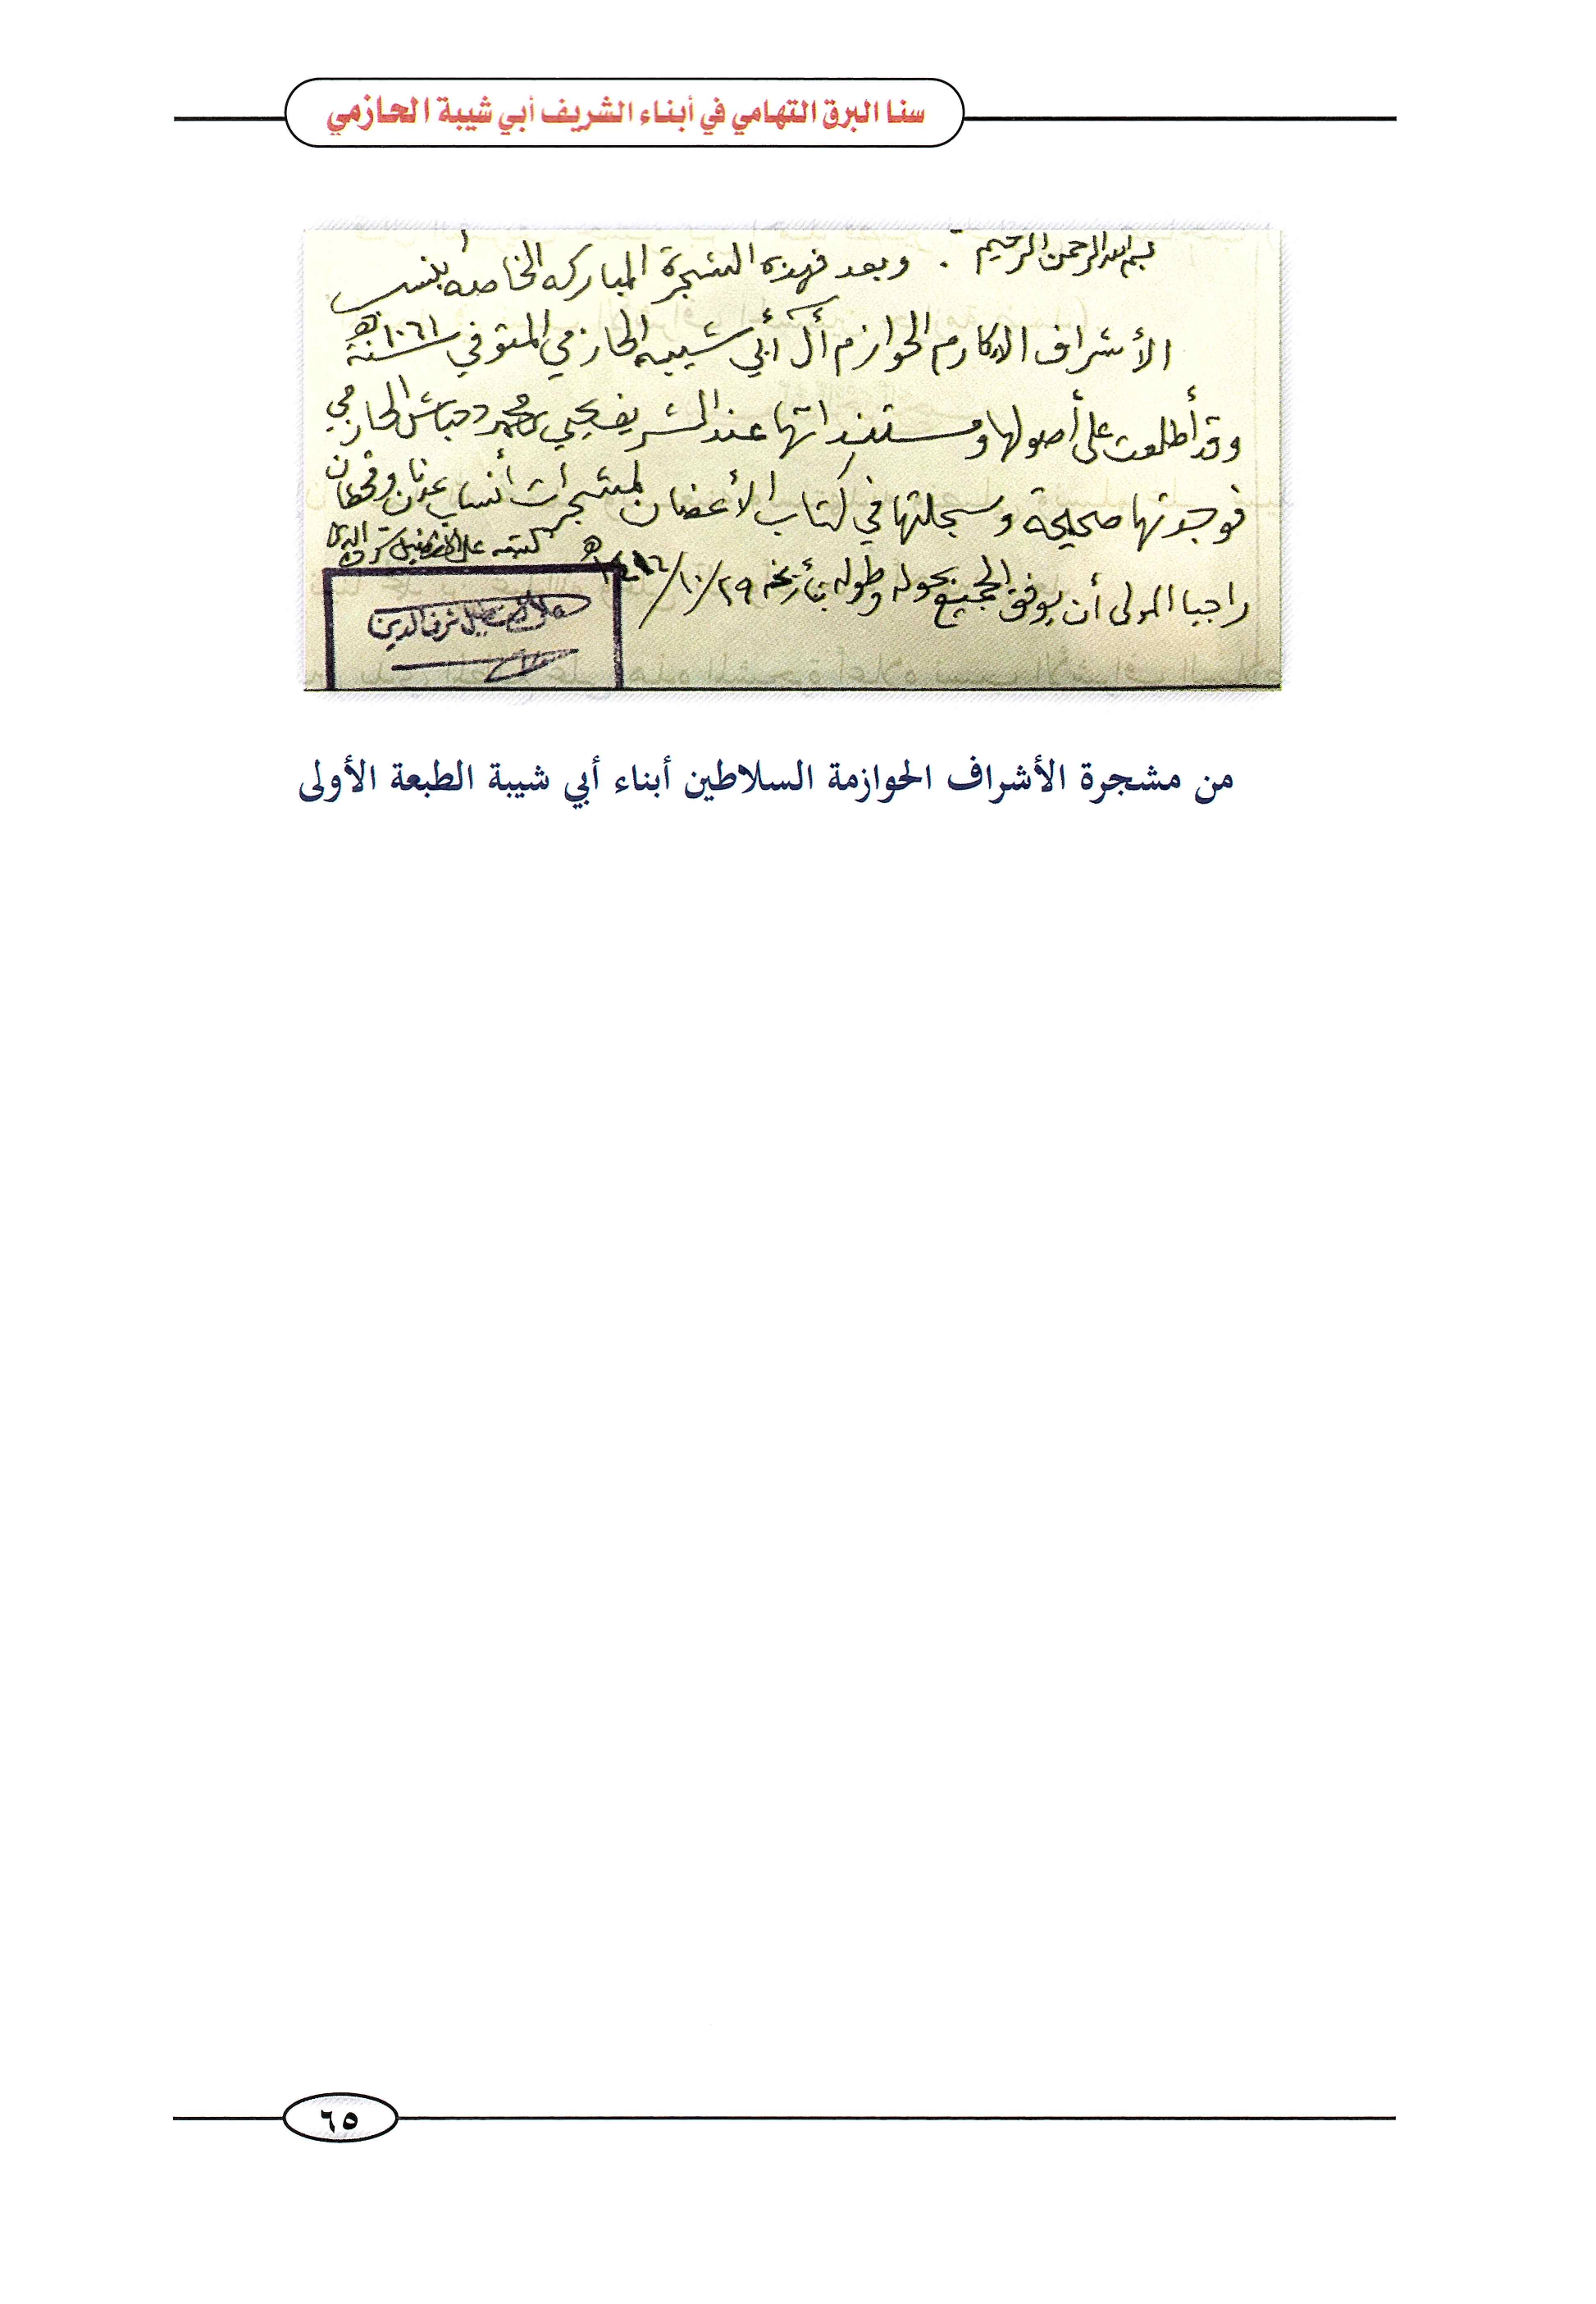 سنا البرق التهامي في أبناء الشريف أبي شيبة الحازمي
بسم الله الرحمن الرحيم . وبعد فهذه المشجرة المباركه الخاصه بنسب
الأشراف الاكارم الحوازم آل أبي شيبه الحازمي المتوفي سنة ١٠٦١هـ
وقد أطلعت على أصولها ومستنداتها عند الشريف يحيى بن محمد دحباش الحازمي
فوجدتها صحيحة وسجلتها في كتاب الأغصان لمشجرات أنساب عدنان وقحطان
راجيا المولى أن يوفق الجميع بحوله وطوله بتأريخه ٢٩/١٠/
كتبه علي الفضيل شرف الدين
علي الفضيل شرف الدين
من مشجرة الأشراف الحوازمة السلاطين أبناء أبي شيبة الطبعة الأولى
٦٥